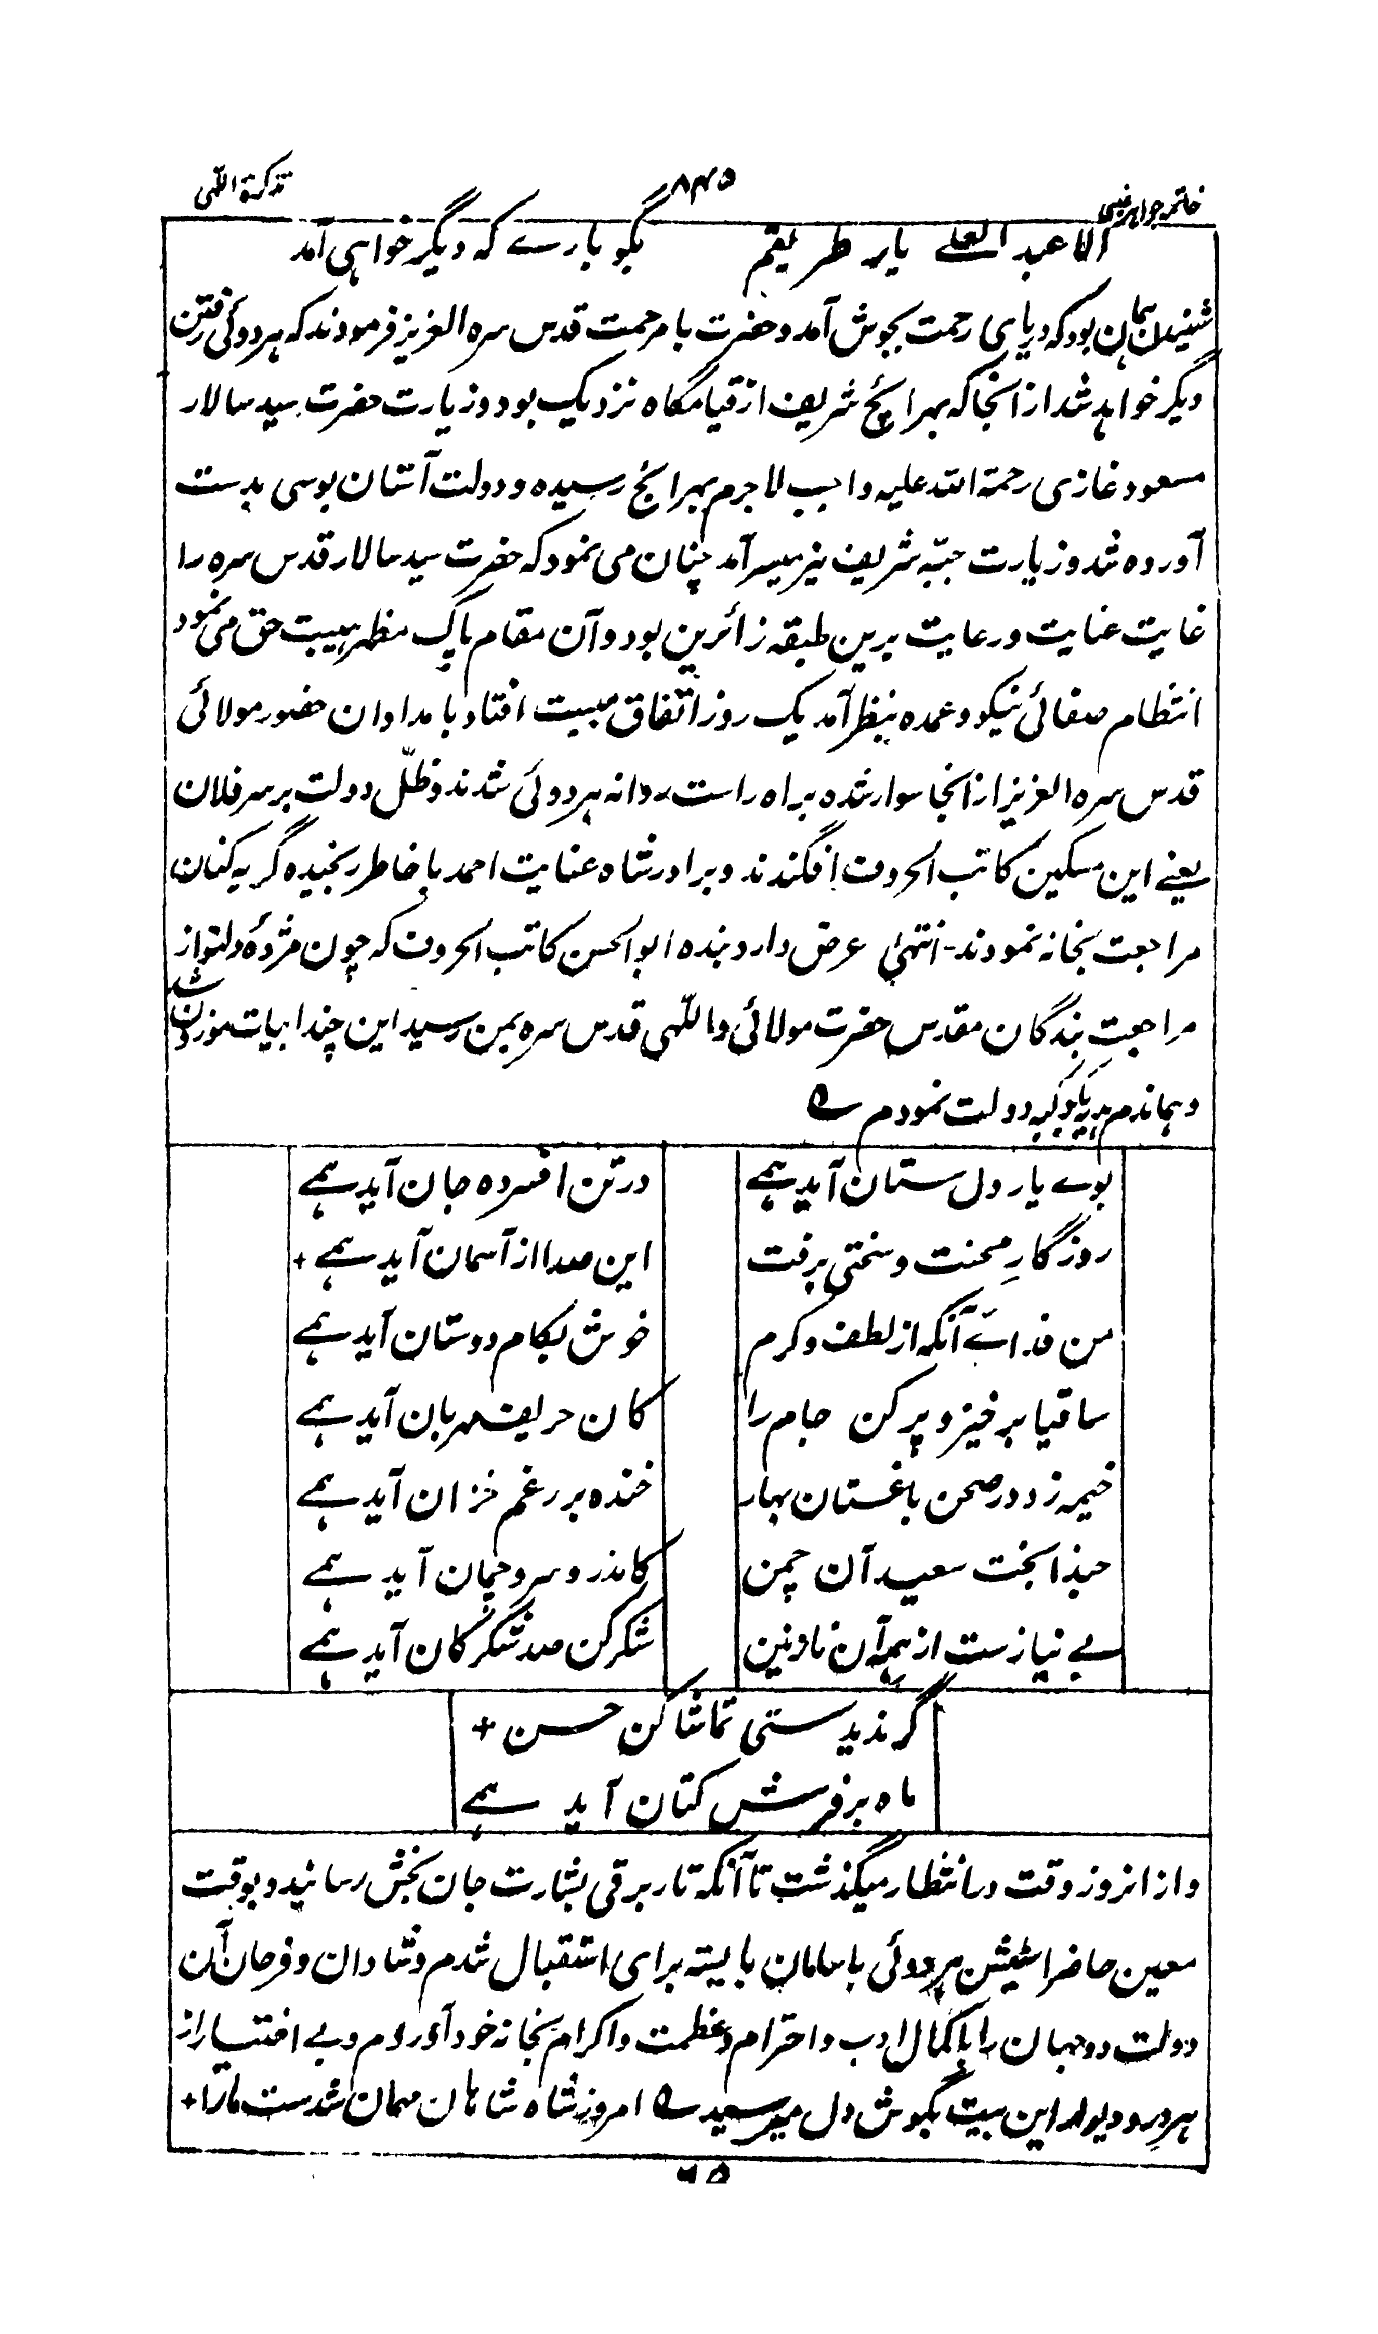 خاتمہ جواہر غیبی ۸۴۵ تذکرة اللّٰہی
الا عبد العلے یار طریقم بگو بارے کہ دیگر خواہی آمد
شنیدن ہمان بود کہ دریای رحمت بجوش آمد و حضرت با مرحمت قدس سرہ العزیز فرمودند کہ ہردوئی رفتن
دیگر خواہد شد از انجا کہ بہرائچ شریف از قیامگاہ نزدیک بود و زیارت حضرت سید سالار
مسعود غازی رحمۃ اللہ علیہ واجب لاجرم بہرائچ رسیدہ و دولت آستان بوسی بدست
آوردہ شد و زیارت جبّہ شریف نیز میسر آمد چنان می نمود کہ حضرت سید سالار قدس سرہ را
غایت عنایت و رعایت برین طبقہ زائرین بود و آن مقام پاک مظہر ہیبت حق می نمود
انتظام صفائی نیکو و عمدہ بنظر آمد یک روز اتفاق مبیت افتاد بامدادان حضور مولائی
قدس سرہ العزیز از انجا سوار شدہ براہ راست روانہ ہردوئی شدند و ظلّ دولت بر سر فلان
یعنے این مسکین کاتب الحروف افگندند و برادر شاہ عنایت احمد با خاطر رنجیدہ گریہ کنان
مراجعت بخانہ نمودند۔ انتہیٰ عرض دارد بندہ ابوالحسن کاتب الحروف کہ چون مژدۂ دلنواز
مراجعتِ بندگان مقدس حضرت مولائی و اللّٰہی قدس سرہ بمن رسید این چند ابیات موزون شد
و ہماندم ہدیہ بارگہ دولت نمودم ے
بوے یار دل ستان آید ہمے در تن افسردہ جان آید ہمے
روزگارِ محنت و سختی برفت این صدا از آسمان آید ہمے +
من فداے آنکہ از لطف و کرم خوش بکام دوستان آید ہمے
ساقیا برخیز و پر کن جام را کان حریف مہربان آید ہمے
خیمہ زد در صحن باغستان بہار خندہ بر رغم خزان آید ہمے
حبذا بخت سعید آن چمن کاندرو سرو چمان آید ہمے
بے نیازست از ہمہ آن نازنین شکر کن صد شکر کان آید ہمے
گر ندیدستی تماشا کن حسن +
ماہ بر فرش کتان آید ہمے
و از انروز وقت در انتظار میگذشت تا آنکہ تار برقی بشارت جان بخش رسانید و بوقت
معین حاضر اسٹیشن ہردوئی با سامان بایستہ برای استقبال شدم و شادان و فرحان آن
دولت دو جہان را با کمال ادب و احترام و عظمت و اکرام بخانہ خود آوردم و بے اختیار از
ہر در و دیوار این بیت بگوش دل میرسید ے امروز شاہ شاہان مہمان شدست مارا +